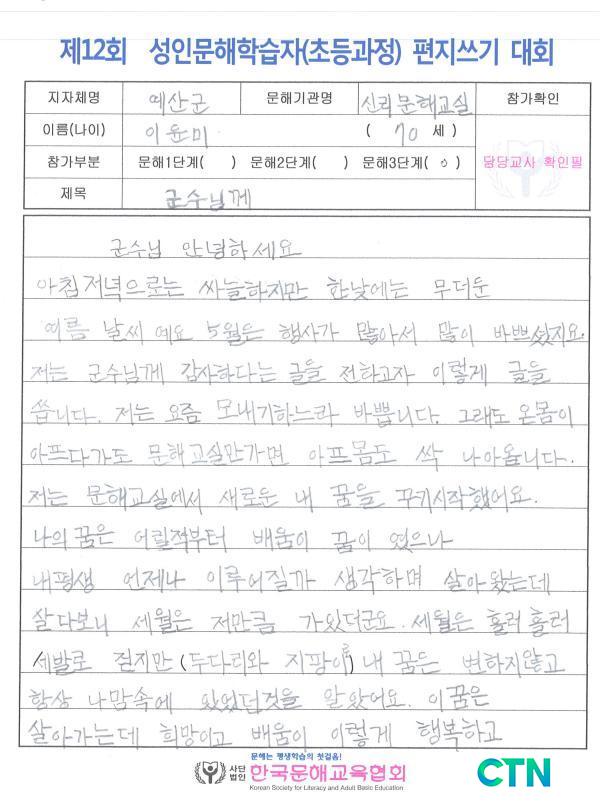 제12회 성인문해학습자(초등과정) 편지쓰기 대회
지자체명 예산군 문해기관명 신리문해교실 참가확인
이름(나이) 이윤미 ( 70 세 )
참가부분 문해1단계( ) 문해2단계( ) 문해3단계( o ) 담당교사 확인필
제목 군수님께
군수님 안녕하세요
아침저녁으로는 싸늘하지만 한낮에는 무더둔
여름 날씨 예요 5월은 행사가 많아서 많이 바쁘셨지요.
저는 군수님께 감사하다는 글을 전하고자 이렇게 글을
씁니다. 저는 요즘 모내기하느라 바쁩니다. 그래도 온몸이
아프다가도 문해교실만가면 아프몸도 싹 나아옵니다.
저는 문해교실에서 새로운 내 꿈을 꾸키시작했어요.
나의 꿈은 어릴적부터 배움이 꿈이 였으나
내평생 언제나 이루어질까 생각하며 살아왔는데
살다보니 세월은 저만큼 가있더군요. 세월은 흘러 흘러
세발로 걷지만 (두다리와 지팡이) 내 꿈은 변하지않고
항상 나맘속에 있었던것을 알았어요. 이꿈은
살아가는데 희망이고 배움이 이렇게 행복하고
문해는 평생학습의 첫걸음!
사단법인 한국문해교육협회
Korean Society for Literacy and Adult Basic Education
CTN